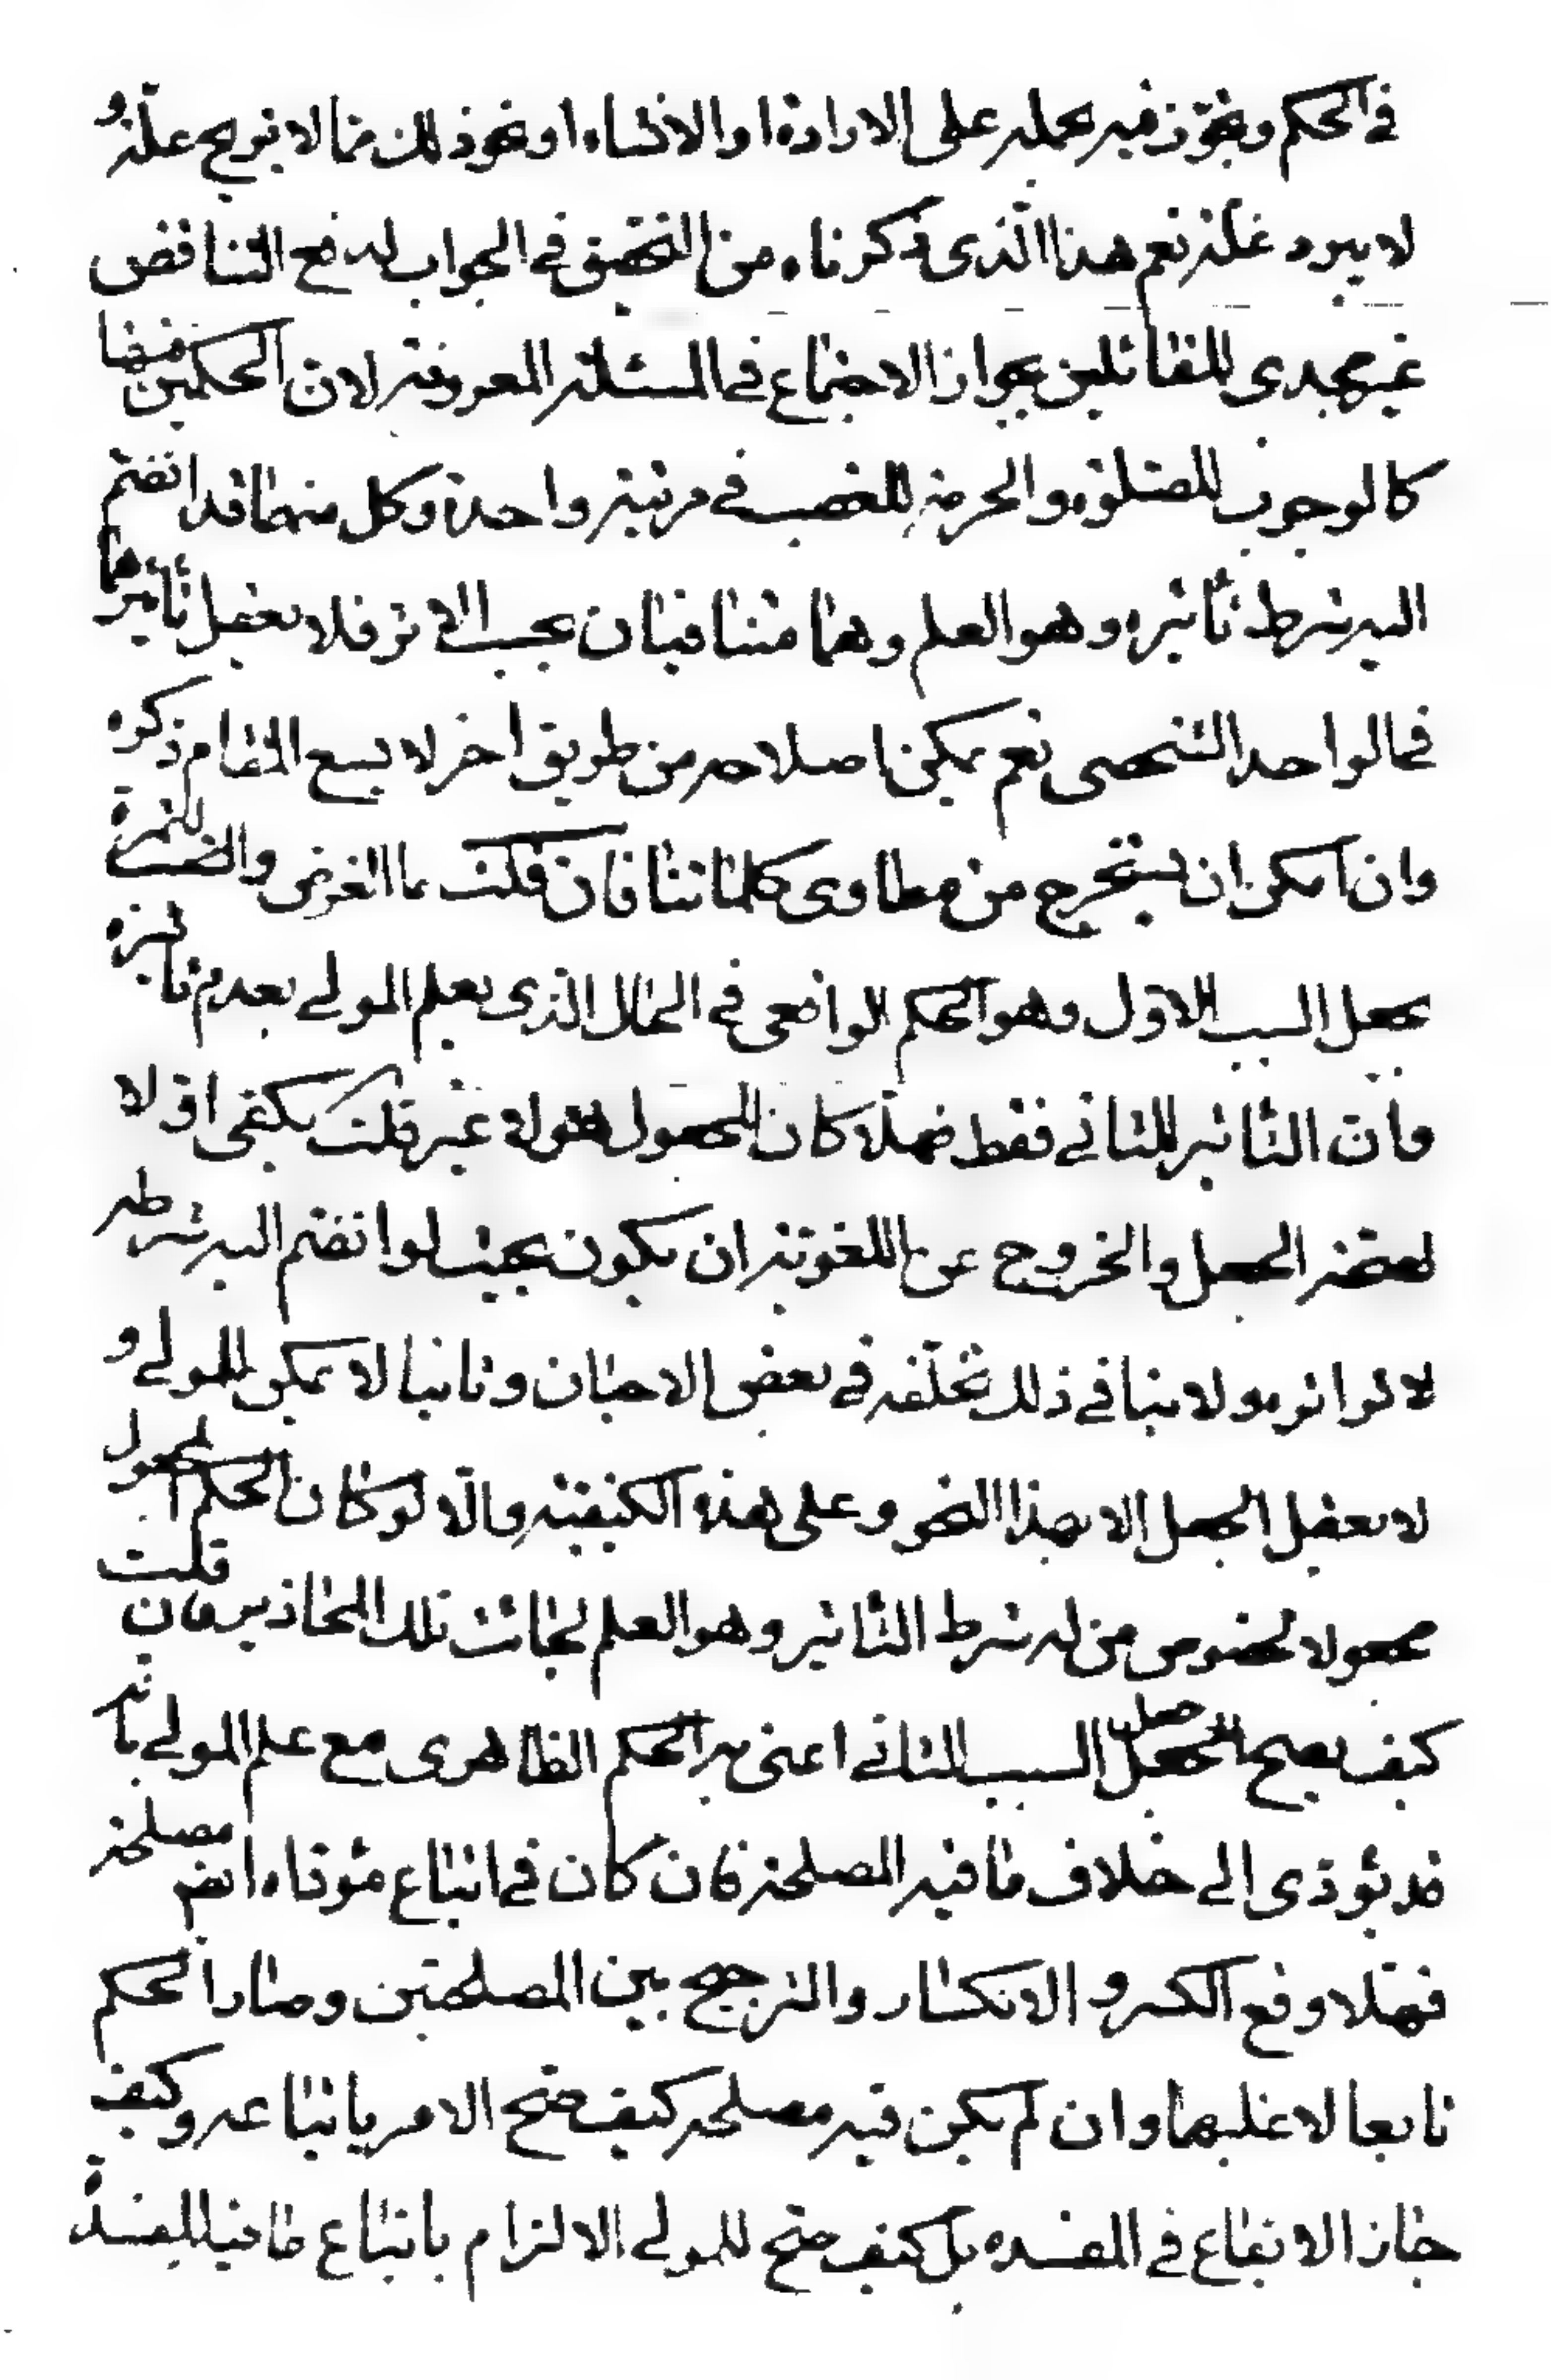 في الحكم وتجوز فيه بحمله على الارادة او الانشاء او نحو ذلك مما لا يريح علة و
لا يبرد غلة نعم هذا الذى ذكرناه من التحقيق في الجواب لدفع التناقض
غير مجدى للقائلين بجواز الاجتماع في المسئلة المعروفة لان الحكمين فيها
كالوجوب للصلوة والحرمة للغصب في مرتبة واحدة وكل منهما قد انضم
اليه شرط تأثيره وهو العلم وهما متنافيان بحسب الاثر فلا يعقل تأثيرهما
في الواحد الشخصى نعم يمكن اصلاحه من طريق اخر لا يسع المقام ذكره
وان امكن ان يستخرج من مطاوى كلماتنا فان قلت ما الغرض والثمرة
بجعل السبب الاول وهو الحكم الواقعى في الحال الذى يعلم المولى بعدم تأثيره
وان التأثير للثانى فقط فهلا كان المجعول هو لا غير قلت يكفى اولا
لصحة الجعل والخروج عن اللغوية ان يكون بحيث لو انضم اليه شرطه
لاثر اثره ولا ينافي ذلك تخلفه في بعض الاحيان وثانيا لا يمكن للمولى و
لا يعقل الجعل الا بهذا النحو وعلى هذه الكيفية والا لو كان الحكم المجعول
مجعولا لخصوص من له شرط التاثير وهو العلم لجائت تلك المحاذير فان قلت
كيف يصح الجعل السبب الثانى اعنى به الحكم الظاهرى مع علم المولى بانه
قد يؤدى الى خلاف ما فيه المصلحة فان كان في اتباع مؤداه ايضا مصلحة
فهلا وقع الكسر و الانكسار والترجيح بين المصلحتين وصار الحكم
تابعا لاغلبهما وان لم يكن فيه مصلحة كيف صح الامر باتباعه وكيف
جاز الايقاع في المفسده بل كيف صح للمولى الالزام باتباع ما فيه المفسدة